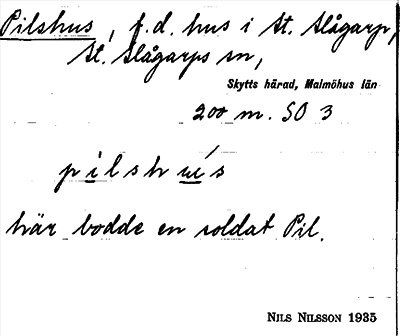 Pilshus, f.d. hus i St. Slågarp,
St. Slågarps sn,
Skytts härad, Malmöhus län
200 m. SO 3
pilshu´s
här bodde en soldat Pil.
NILS NILSSON 1935